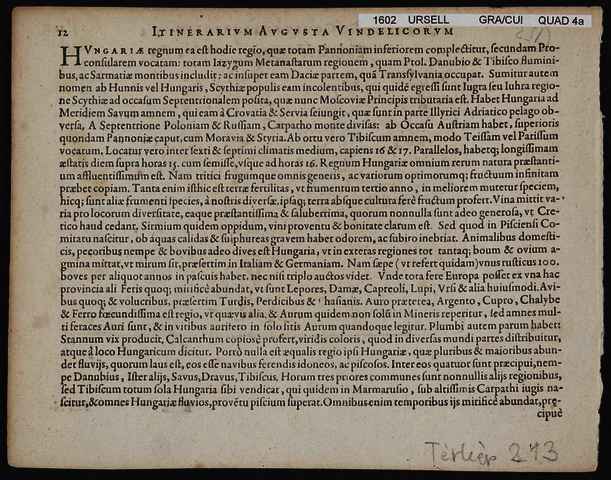 1602 URSELL GRA/CUI QUAD 4a
12 ITINERARIVM AVGVSTA VINDELICORVM
HVNGARIÆ regnum ea est hodie regio, quæ totam Pannoniam inferiorem complectitur, secundam Pro-
consularem vocatam: totam Iazygum Metanastarum regionem, quam Ptol. Danubio & Tibisco flumini-
bus, ac Sarmatiæ montibus includit: ac insuper eam Daciæ partem, quā Transylvania occupat. Sumit autem
nomen ab Hunnis vel Hungaris, Scythiæ populis eam incolentibus, qui quidē egressi sunt Iugra seu Iuhra regio-
ne Scythiæ ad occasum Septentrionalem posita, quæ nunc Moscoviæ Principis tributaria est. Habet Hungaria ad
Meridiem Savum amnem, qui eam à Crovatia & Servia seiungit, quæ sunt in parte Illyrici Adriatico pelago ob-
versa, A Septentrione Poloniam & Russiam, Carpatho monte divisas: ab Occasu Austriam habet, superioris
quondam Pannoniæ caput, cum Moravia & Styria. Ab ortu vero Tibiscum amnem, modo Teissam vel Parissum
vocatum. Locatur vero inter sexti & septimi climatis medium, capiens 16 & 17. Parallelos, habetq; longissimam
æstatis diem supra horas 15. cum semisse, vsque ad horas 16. Regnum Hungariæ omnium rerum natura præstanti-
um affluentissimum est. Nam tritici frugumque omnis generis, ac variorum optimorumq; fructuum infinitam
præbet copiam. Tanta enim isthic est terræ fertilitas, vt frumentum tertio anno, in meliorem mutetur speciem,
hicq; sunt aliæ frumenti species, à nostris diversæ. ipsaq; terra absque cultura ferè fructum profert. Vina mittit va-
ria pro locorum diversitate, eaque præstantissima & saluberrima, quorum nonnulla sunt adeo generosa, vt Cre-
tico haud cedant. Sirmium quidem oppidum, vini proventu & bonitate clarum est. Sed quod in Pisciensi Co-
mitatu nascitur, ob aquas calidas & sulphureas gravem habet odorem, ac subiro inebriat. Animalibus domesti-
cis, pecoribus nempe & bovibus adeo dives est Hungaria, vt in exteras regiones tot tantaq; boum & ovium a-
gmina mittat, vt mirum sit, præsertim in Italiam & Germaniam. Nam sæpe (vt refert quidam) vnus rusticus 100.
boves per aliquot annos in pascuis habet. nec nisi triplo auctos videt. Vnde tota fere Europa posset ex vna hac
provincia ali Feris quoq; mirificè abundat, vt sunt Lepores, Damæ, Capreoli, Lupi, Vrsi & alia huiusmodi. Avi-
bus quoq; & volucribus, præsertim Turdis, Perdicibus & hasianis. Auro præterea, Argento, Cupro, Chalybe
& Ferro fœcundissima est regio, vt quævis alia. & Aurum quidem non solū in Mineris reperitur, sed amnes mul-
ti feraces Auri sunt, & in vitibus auritero in solo sitis Aurum quandoque legitur. Plumbi autem parum habet:
Stannum vix producit, Calcanthum copiosè profert, viridis coloris, quod in diversas mundi partes distribuitur,
atque à loco Hungaricum dicitur. Porrò nulla est æqualis regio ipsi Hungariæ, quæ pluribus & maioribus abun-
det fluvijs, quorum laus est, eos esse navibus ferendis idoneos, ac piscosos. Inter eos quatuor sunt præcipui, nem-
pe Danubius, Ister alijs, Savus, Dravus, Tibiscus. Horum tres priores communes sunt nonnullis alijs regionibus,
sed Tibiscum totum sola Hungaria sibi vendicat, qui quidem in Marmarusio, sub altissimis Carpathi iugis na-
scitur, & omnes Hungariæ fluvios, provētu piscium superat. Omnibus enim temporibus ijs mirificè abundat, præ-
cipuè
293